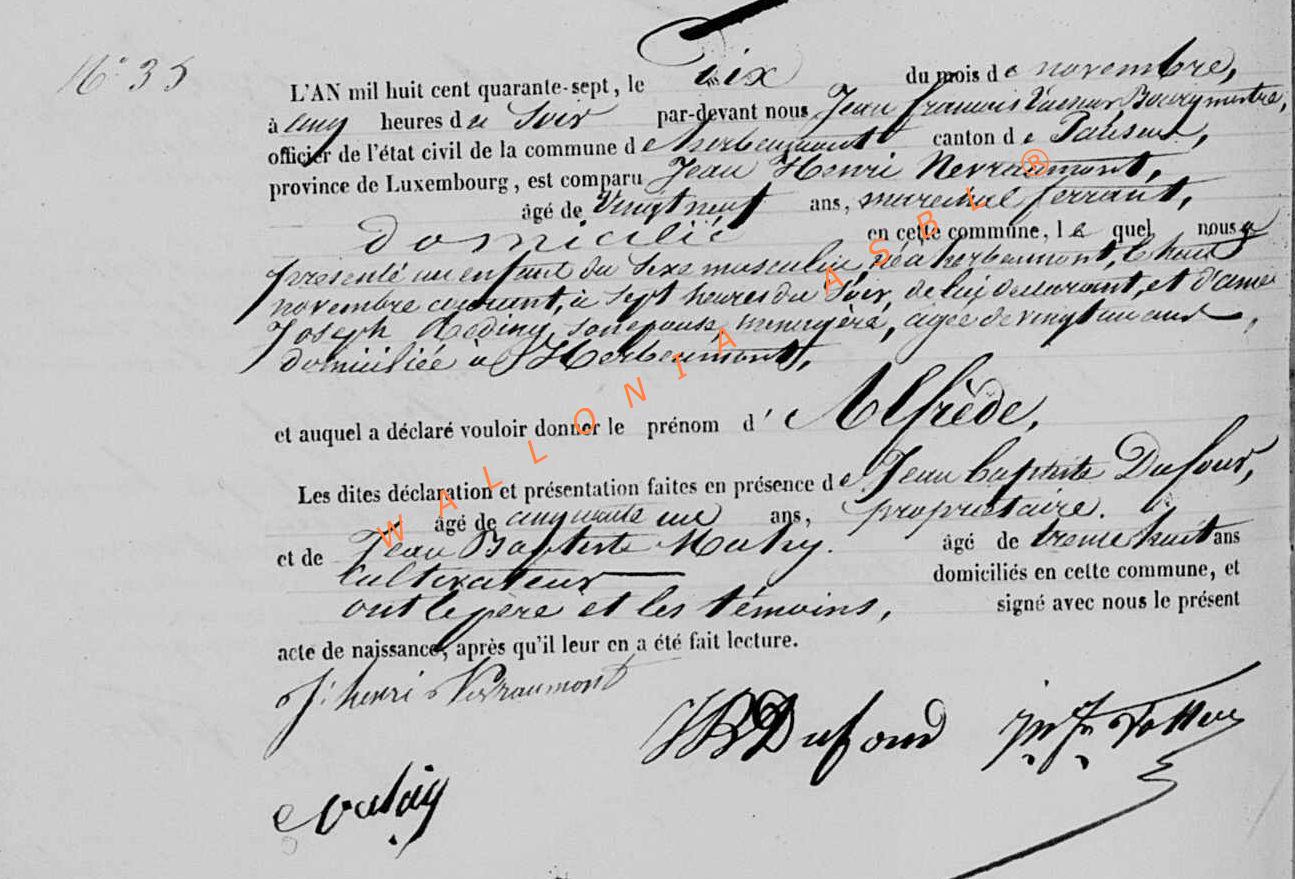 N° 35
L'AN mil huit cent quarante-sept, le Dix du mois de novembre,
à cinq heures du Soir par-devant nous Jean françois Bourgmestre,
officier de l'état civil de la commune de herbeumont canton de Paliseul,
province de Luxembourg, est comparu Jean Henri Nevraumont,
âgé de Vingt neuf ans, marechal ferrant,
domicilié en cette commune, le quel nous a
présenté un enfant du Sexe masculin, né à herbeumont, le huit
novembre courant, à Sept heures du Soir, de lui déclarant, et d'anne
Joseph Son epouse menagère, agée de vingt
domiciliée à Herbeumont,
et auquel a déclaré vouloir donner le prénom d' Alfrède,
Les dites déclaration et présentation faites en présence de Jean baptiste Dufour,
âgé de cinquante ans, propriétaire.
et de Jean Baptiste Mathy. âgé de trente huit ans
Cultivateur domiciliés en cette commune, et
ont le père et les témoins, signé avec nous le présent
acte de naissance, après qu'il leur en a été fait lecture.
J. henri Nevraumont
JB Dufour
WALLONIA ASBL ®